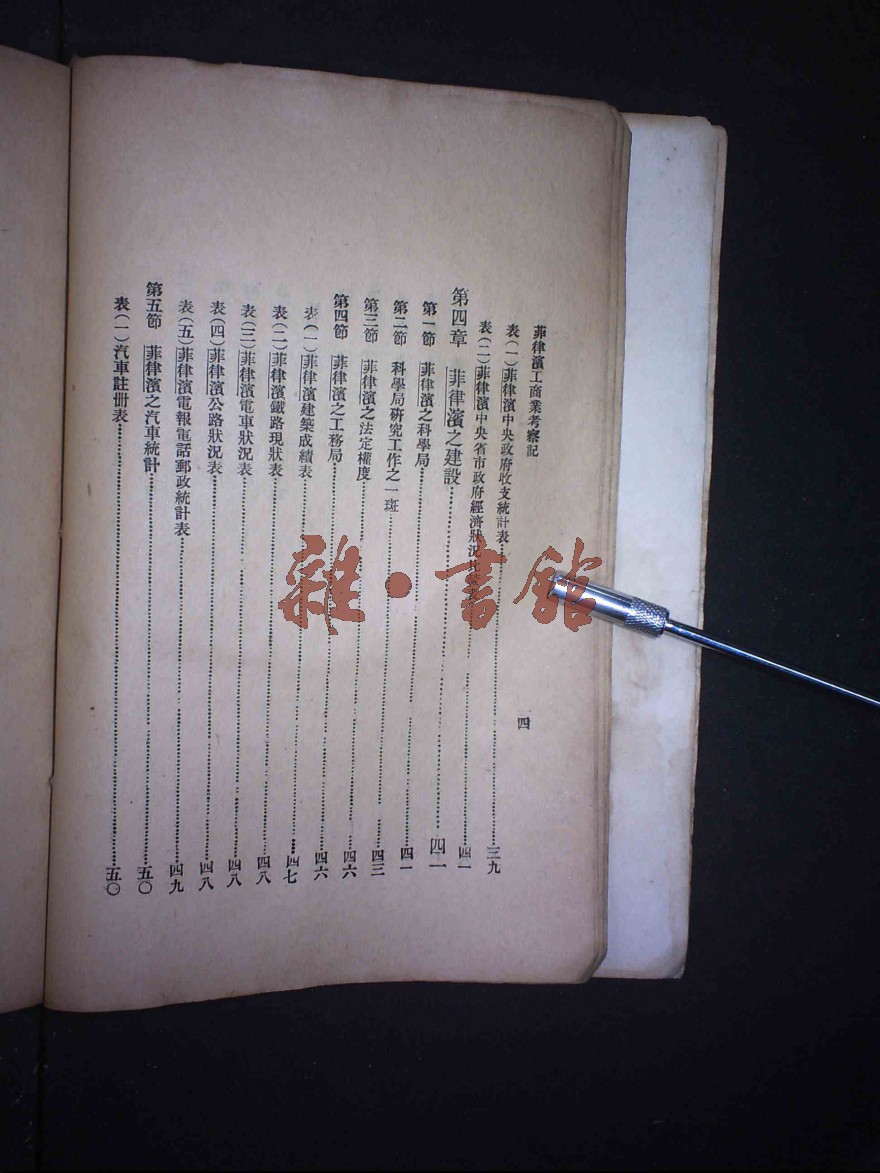 菲律濱工商業考察記 四
表(一)菲律濱中央政府收支統計表……三九
表(二)菲律濱中央省市政府經濟狀況……四一
第四章 菲律濱之建設……四一
第一節 菲律濱之科學局……四一
第二節 科學局研究工作之一斑……四三
第三節 菲律濱之法定權度……四六
第四節 菲律濱之工務局……四六
表(一)菲律濱建築成績表……四七
表(二)菲律濱鐵路現狀表……四八
表(三)菲律濱電車狀況表……四八
表(四)菲律濱公路狀況表……四八
表(五)菲律濱電報電話郵政統計表……四九
第五節 菲律濱之汽車統計……五〇
表(一)汽車註册表……五〇
雜·書館